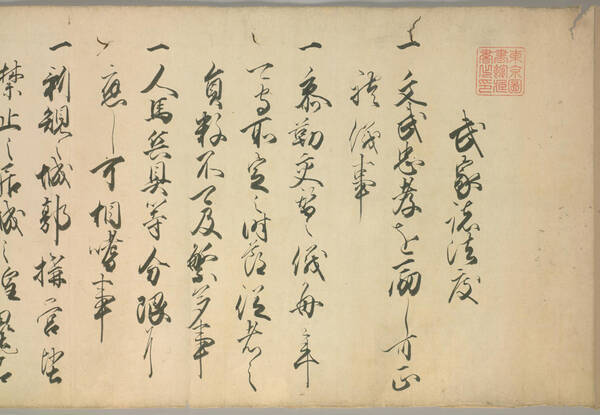 東京圖
武家諸法度
一 文武忠孝を励し可正
禮儀事
一 参勤交替之儀毎年
可守所定之時節従者之
員数不可及繁多事
一 人馬兵具等分限に
應し可相嗜事
一 新規之城郭構営堅
禁止之居城之隍塁石